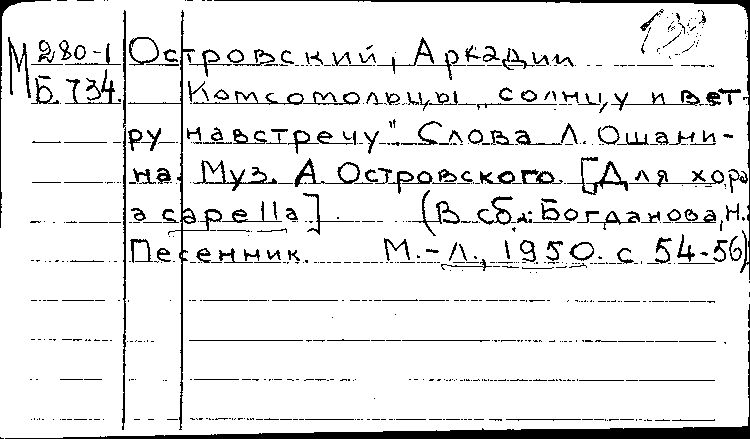 139
М 280-1 Островский, Аркадии
Б.734. Комсомольцы „солнцу и вет-
ру навстречу". Слова Л. Ошани-
на. Муз. А. Островского. [Для хора
a capella] (В сб.: Богданова, Н.:
Песенник. М.-Л., 1950. с 54-56)